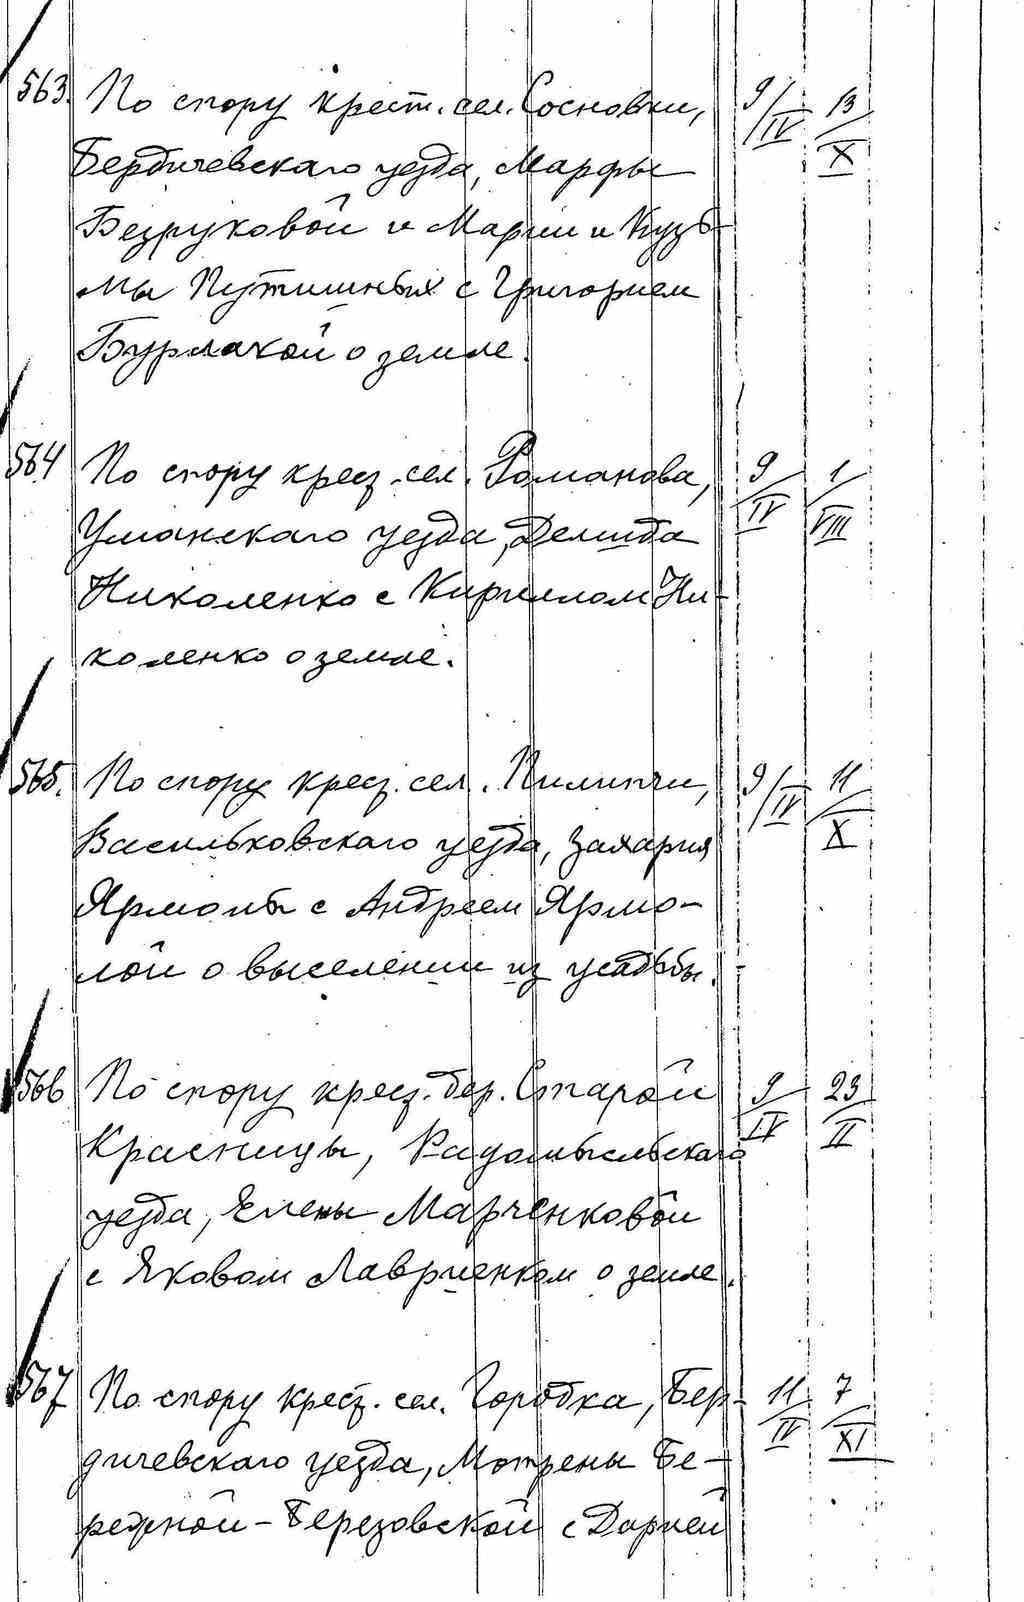 563. По спору крест. сел. Сосновки, 9/IV 13/X
Бердичевскаго уезда, Марфы
Безруковой и Марии и Кузь-
мы Путишных с Григорием
Бурлакой о земле.
564 По спору крест. сел. Романова, 9/IV 1/VIII
Уманскаго уезда, Демида
Николенко с Кириллом Ни-
коленко о земле.
565. По спору крест. сел. Пилипчи, 9/IV 11/X
Васильковскаго уезда, Захария
Ярмолы с Андреем Ярмо-
лой о выселении из усадьбы.
566 По спору крест. дер. Старой 9/IV 23/II
Красницы, Радомысльскаго
уезда, Елены Марченковой
с Яковом Лавриенком о земле.
567 По спору крест. сел. Городка, Бер- 11/IV 7/XI
дичевскаго уезда, Мотрены Бе-
режной-Березовской с Дарией